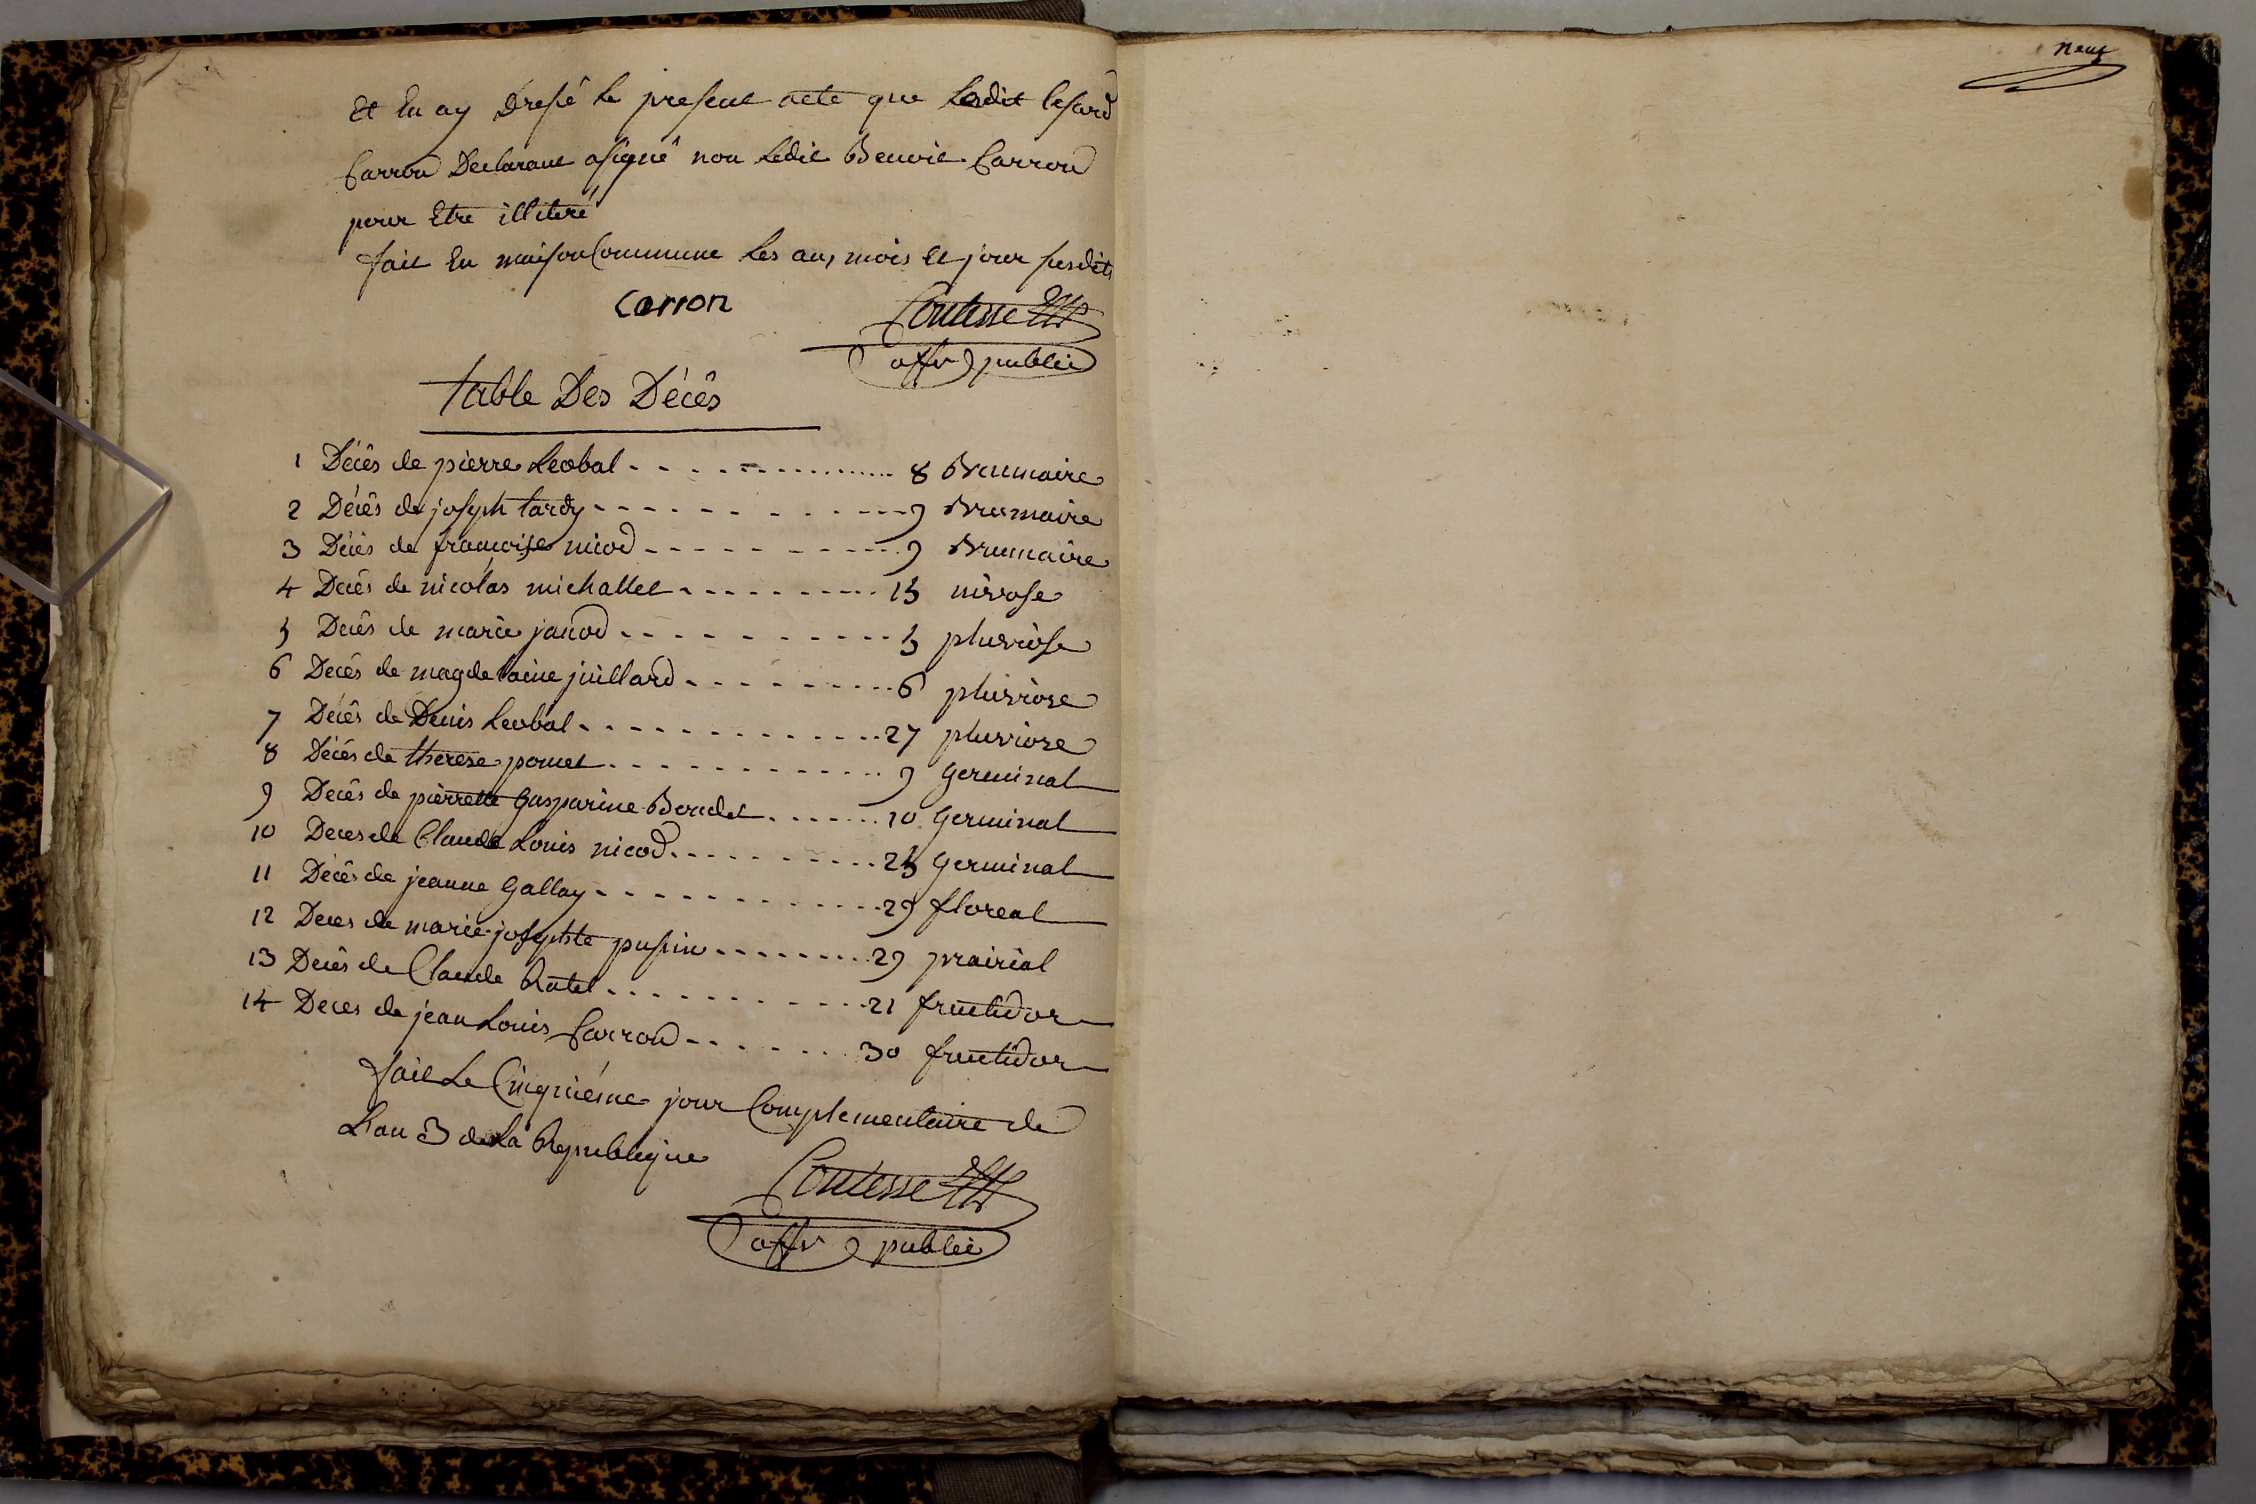 Et En ay Dressé Le present acte que Ledit Cesard
Carron Declarant assigné non Ledit Benoit Carron
pour Etre illiteré
fait En maison Commune Les an, mois Et jour susdits
Carron
Contesse
offr public
table Des Décès
1 Décès de pierre Leobal 8 Brumaire
2 Décès de joseph tardy 9 Brumaire
3 Décès de françoise nicod 9 Brumaire
4 Decès de nicolas michallet 15 nivose
5 Decès de marie janod 5 pluviose
6 Decès de magdelaine juillard 6 pluviose
7 Décès de Denis Leobal 27 pluviose
8 Décès de therese pomet 9 Germinal
9 Decès de pierrette Gasparine Boudet 10 Germinal
10 Deces de Claude Louis nicod 25 Germinal
11 Décès de jeanne Gallay 29 floreal
12 Deces de marie josephte pussin 29 prairial
13 Decès de Claude Ratel 21 fructidor
14 Deces de jean Louis Carron 30 fructidor
fait Le Cinquiéme jour Complementaire de
L'an 3 de La Republique
Contesse
offr public
neuf